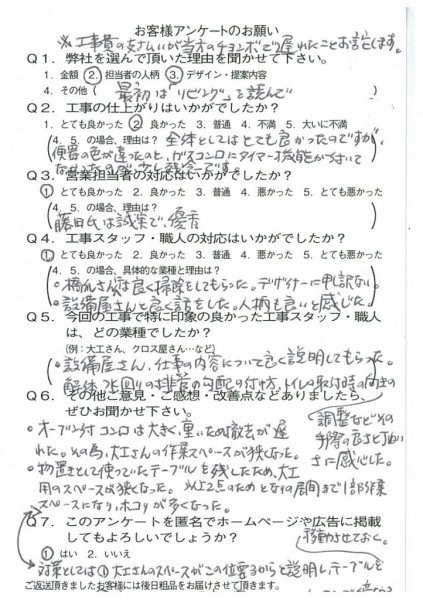 お客様アンケートのお願い
※工事費の支払いが当方のチョンボで遅れたことお詫します。
Q1. 弊社を選んで頂いた理由を聞かせて下さい。
1. 金額 ②. 担当者の人柄 ③. デザイン・提案内容
4. その他( 最初は「リビング」を読んで )
Q2. 工事の仕上がりはいかがでしたか？
1. とても良かった ② 良かった 3. 普通 4. 不満 5. 大いに不満
(4. 5. の場合、理由は？ 全体としてはとても良かったのですが、
便器の色が違ったのと、ガスコンロにタイマー機能がついて
Q3. 営業担当者の対応はいかがでしたか？
① とても良かった 2. 良かった 3. 普通 4. 悪かった 5. とても悪かった
(4. 5. の場合、理由は？
藤田氏は誠実で、優秀
Q4. 工事スタッフ・職人の対応はいかがでしたか？
① とても良かった 2. 良かった 3. 普通 4. 悪かった 5. とても悪かった
(4. 5. の場合、具体的な業種と理由は？
さんは良く掃除をしてもらった。デザイナーに申訳ない。
・設備屋さんと良く話をした。人柄も良いと感じた。
Q5. 今回の工事で特に印象の良かった工事スタッフ・職人
は、どの業種でしたか？
(例：大工さん、クロス屋さん…など)
・設備屋さん、仕事の内容について良く説明してもらった。
解体、水回りの排管の勾配の付け方、トイレの取付時の向きの
調整などその
手際の良さと丁ねい
さに感心した。
Q6. その他ご意見・ご感想・改善点などありましたら、
ぜひお聞かせ下さい。
・オーブン付コンロは大きく、重いため撤去が遅
れた。その為、大工さんの作業スペースが狭くなった。
・物置きとして使っていたテーブルを残したため、大工
用のスペースが狭くなった。 以上2点のためとなりの居間まで1部作業
スペースになり、ホコリが多くなった。
Q7. このアンケートを匿名でホームページや広告に掲載
してもよろしいでしょうか？
① はい 2. いいえ
移動させておく。
対策としては①大工さんのスペースがこの位要るからと説明し、テーブルを
ご返送頂きましたお客様には後日粗品をお届けさせて頂きます。